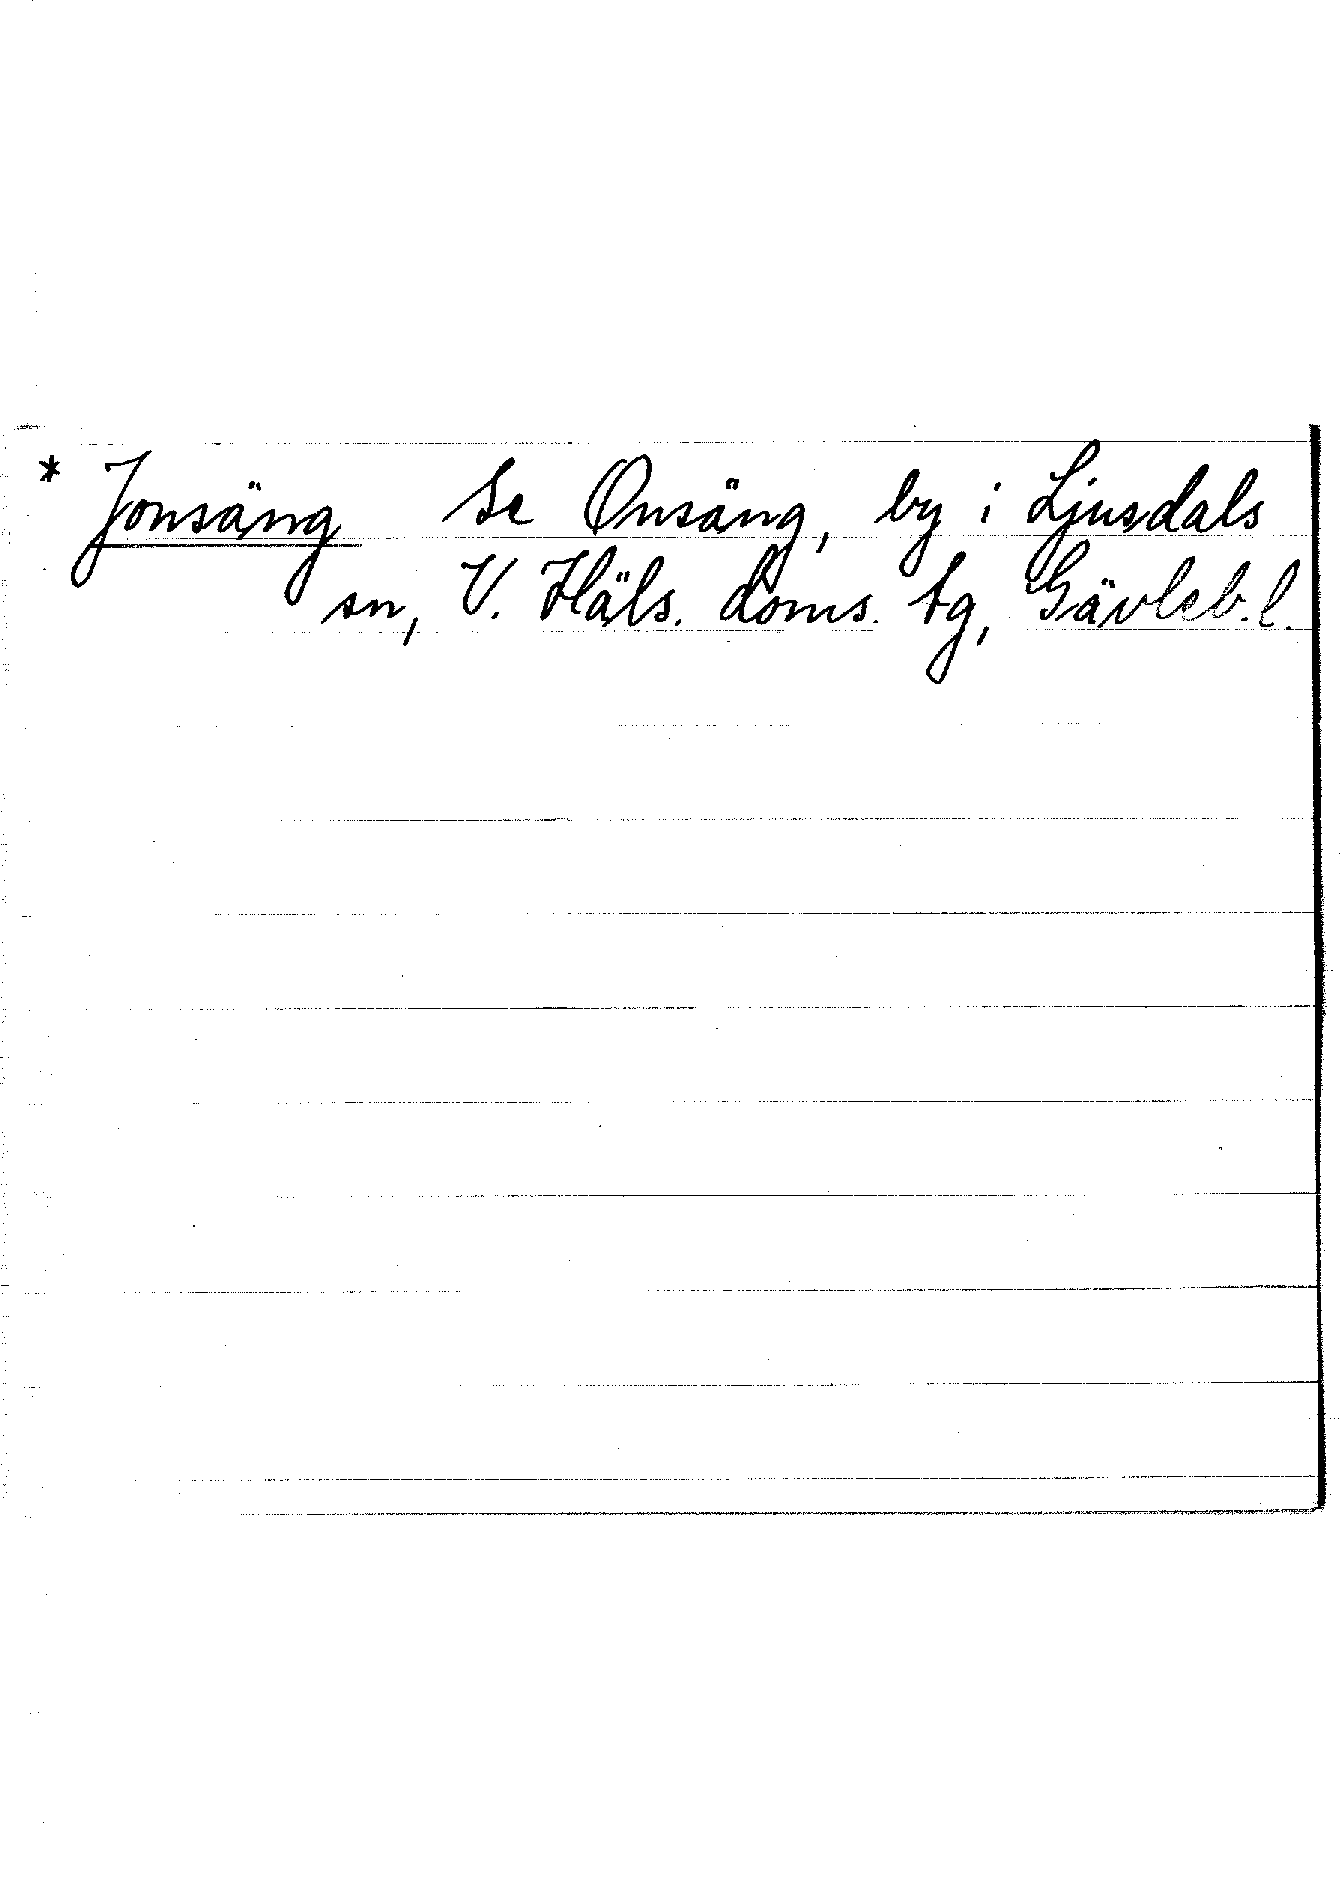 * Jonsäng Se Onsäng, by i Ljusdals
sn, V. Häls. doms. tg, Gävleb. l.